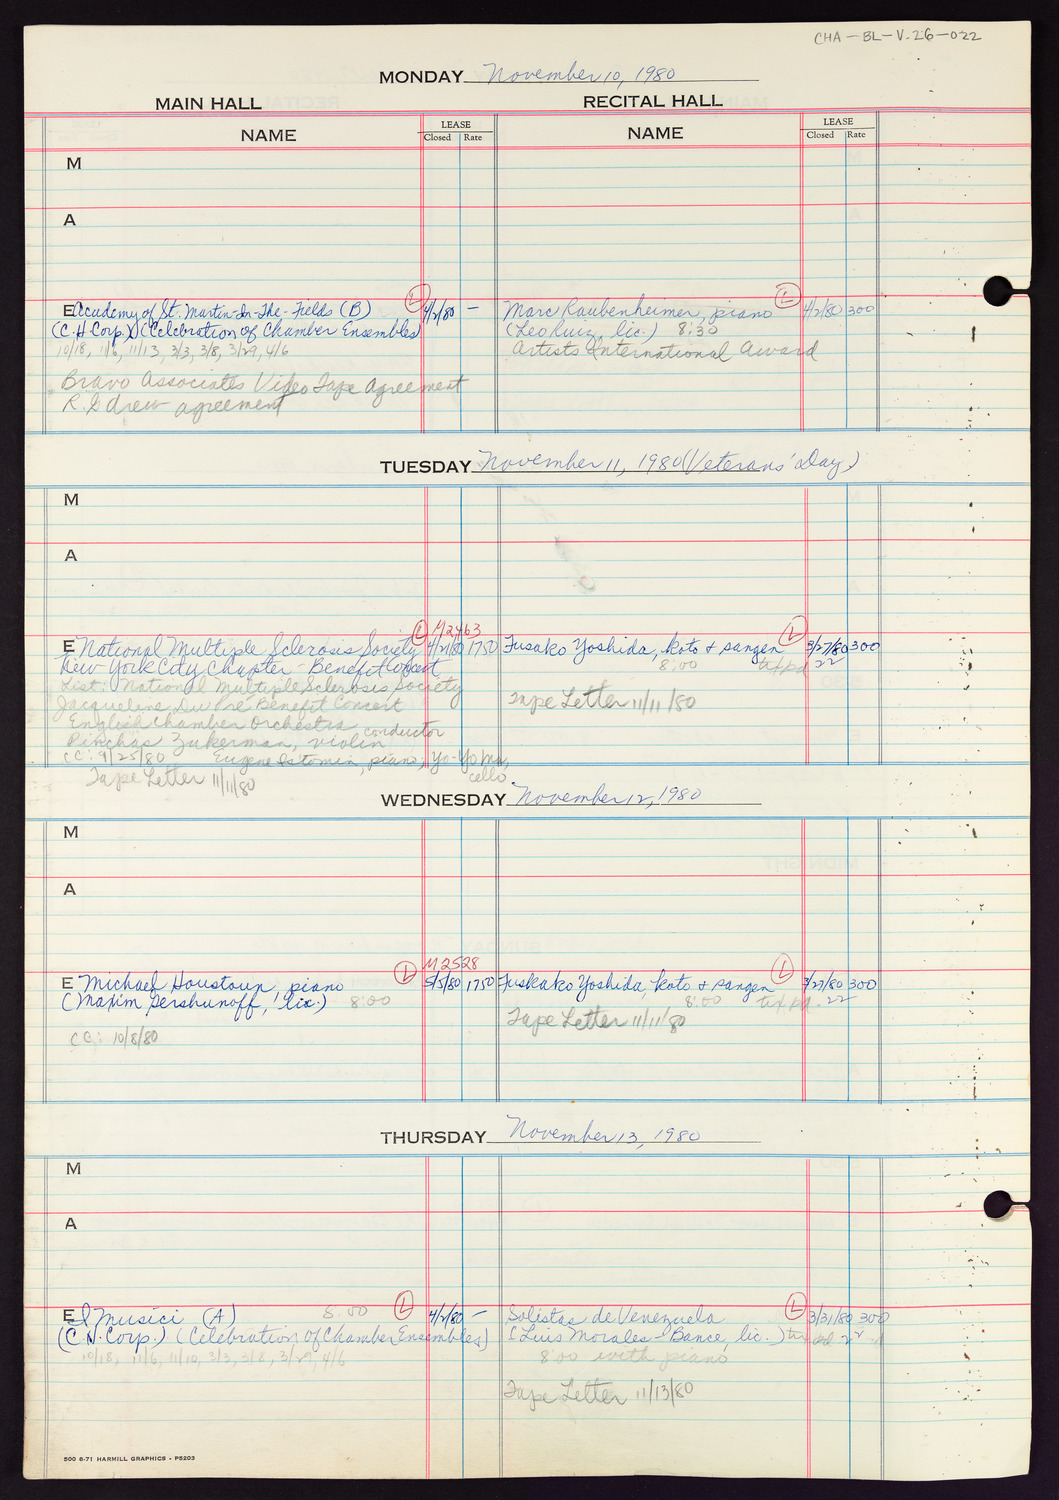 CHA-BL-V.26-022
MONDAY November 10, 1980
MAIN HALL
RECITAL HALL
NAME
LEASE
Closed Rate
NAME
LEASE
Closed Rate
M
A
E Academy of St. Martin-In-The-Fields (B) L 4/2/80 —
(C.H. Corp.) (Celebration of Chamber Ensembles)
10/18, 11/6, 11/13, 3/3, 3/8, 3/29, 4/6
Bravo Associates Video Tape Agreement
agreement
Marc Raubenheimer, piano L 4/2/80 300
(Leo Ruiz, lic.) 8:30
Artists International Award
TUESDAY November 11, 1980 (Veterans' Day)
M
A
M2463
E National Multiple Sclerosis Society L 4/21/80 1750
New York City Chapter - Benefit Concert
List: National Multiple Sclerosis Society
Jacqueline Du Pre Benefit Concert
English Chamber Orchestra
Pinchas Zukerman, violin conductor
CC: 9/25/80 Eugene Istomin, piano, Yo-Yo Ma,
cello
Tape Letter 11/11/80
Fusako Yoshida, koto + sangen L 3/27/80 300
8:00 tix pd 22
Tape Letter 11/11/80
WEDNESDAY November 12, 1980
M
A
M2528
E Michael Houstoun, piano L 5/5/80 1750
(Maxim Gershunoff, lic.) 8:00
CC: 10/8/80
Fuskako Yoshida, koto + sangen L 3/27/80 300
8:00 tix pd. 22
Tape Letter 11/11/80
THURSDAY November 13, 1980
M
A
E I Musici (A) 8:00 L 4/2/80 —
(C.H. Corp.) (Celebration of Chamber Ensembles)
10/18, 11/6, 11/10, 3/3, 3/8, 3/29, 4/6
Solistas de Venezuela L 3/31/80 300
(Luis Morales-Bance, lic.) tix pd 22
8:00 with piano
Tape Letter 11/13/80
500 8-71 HARMILL GRAPHICS - P5203